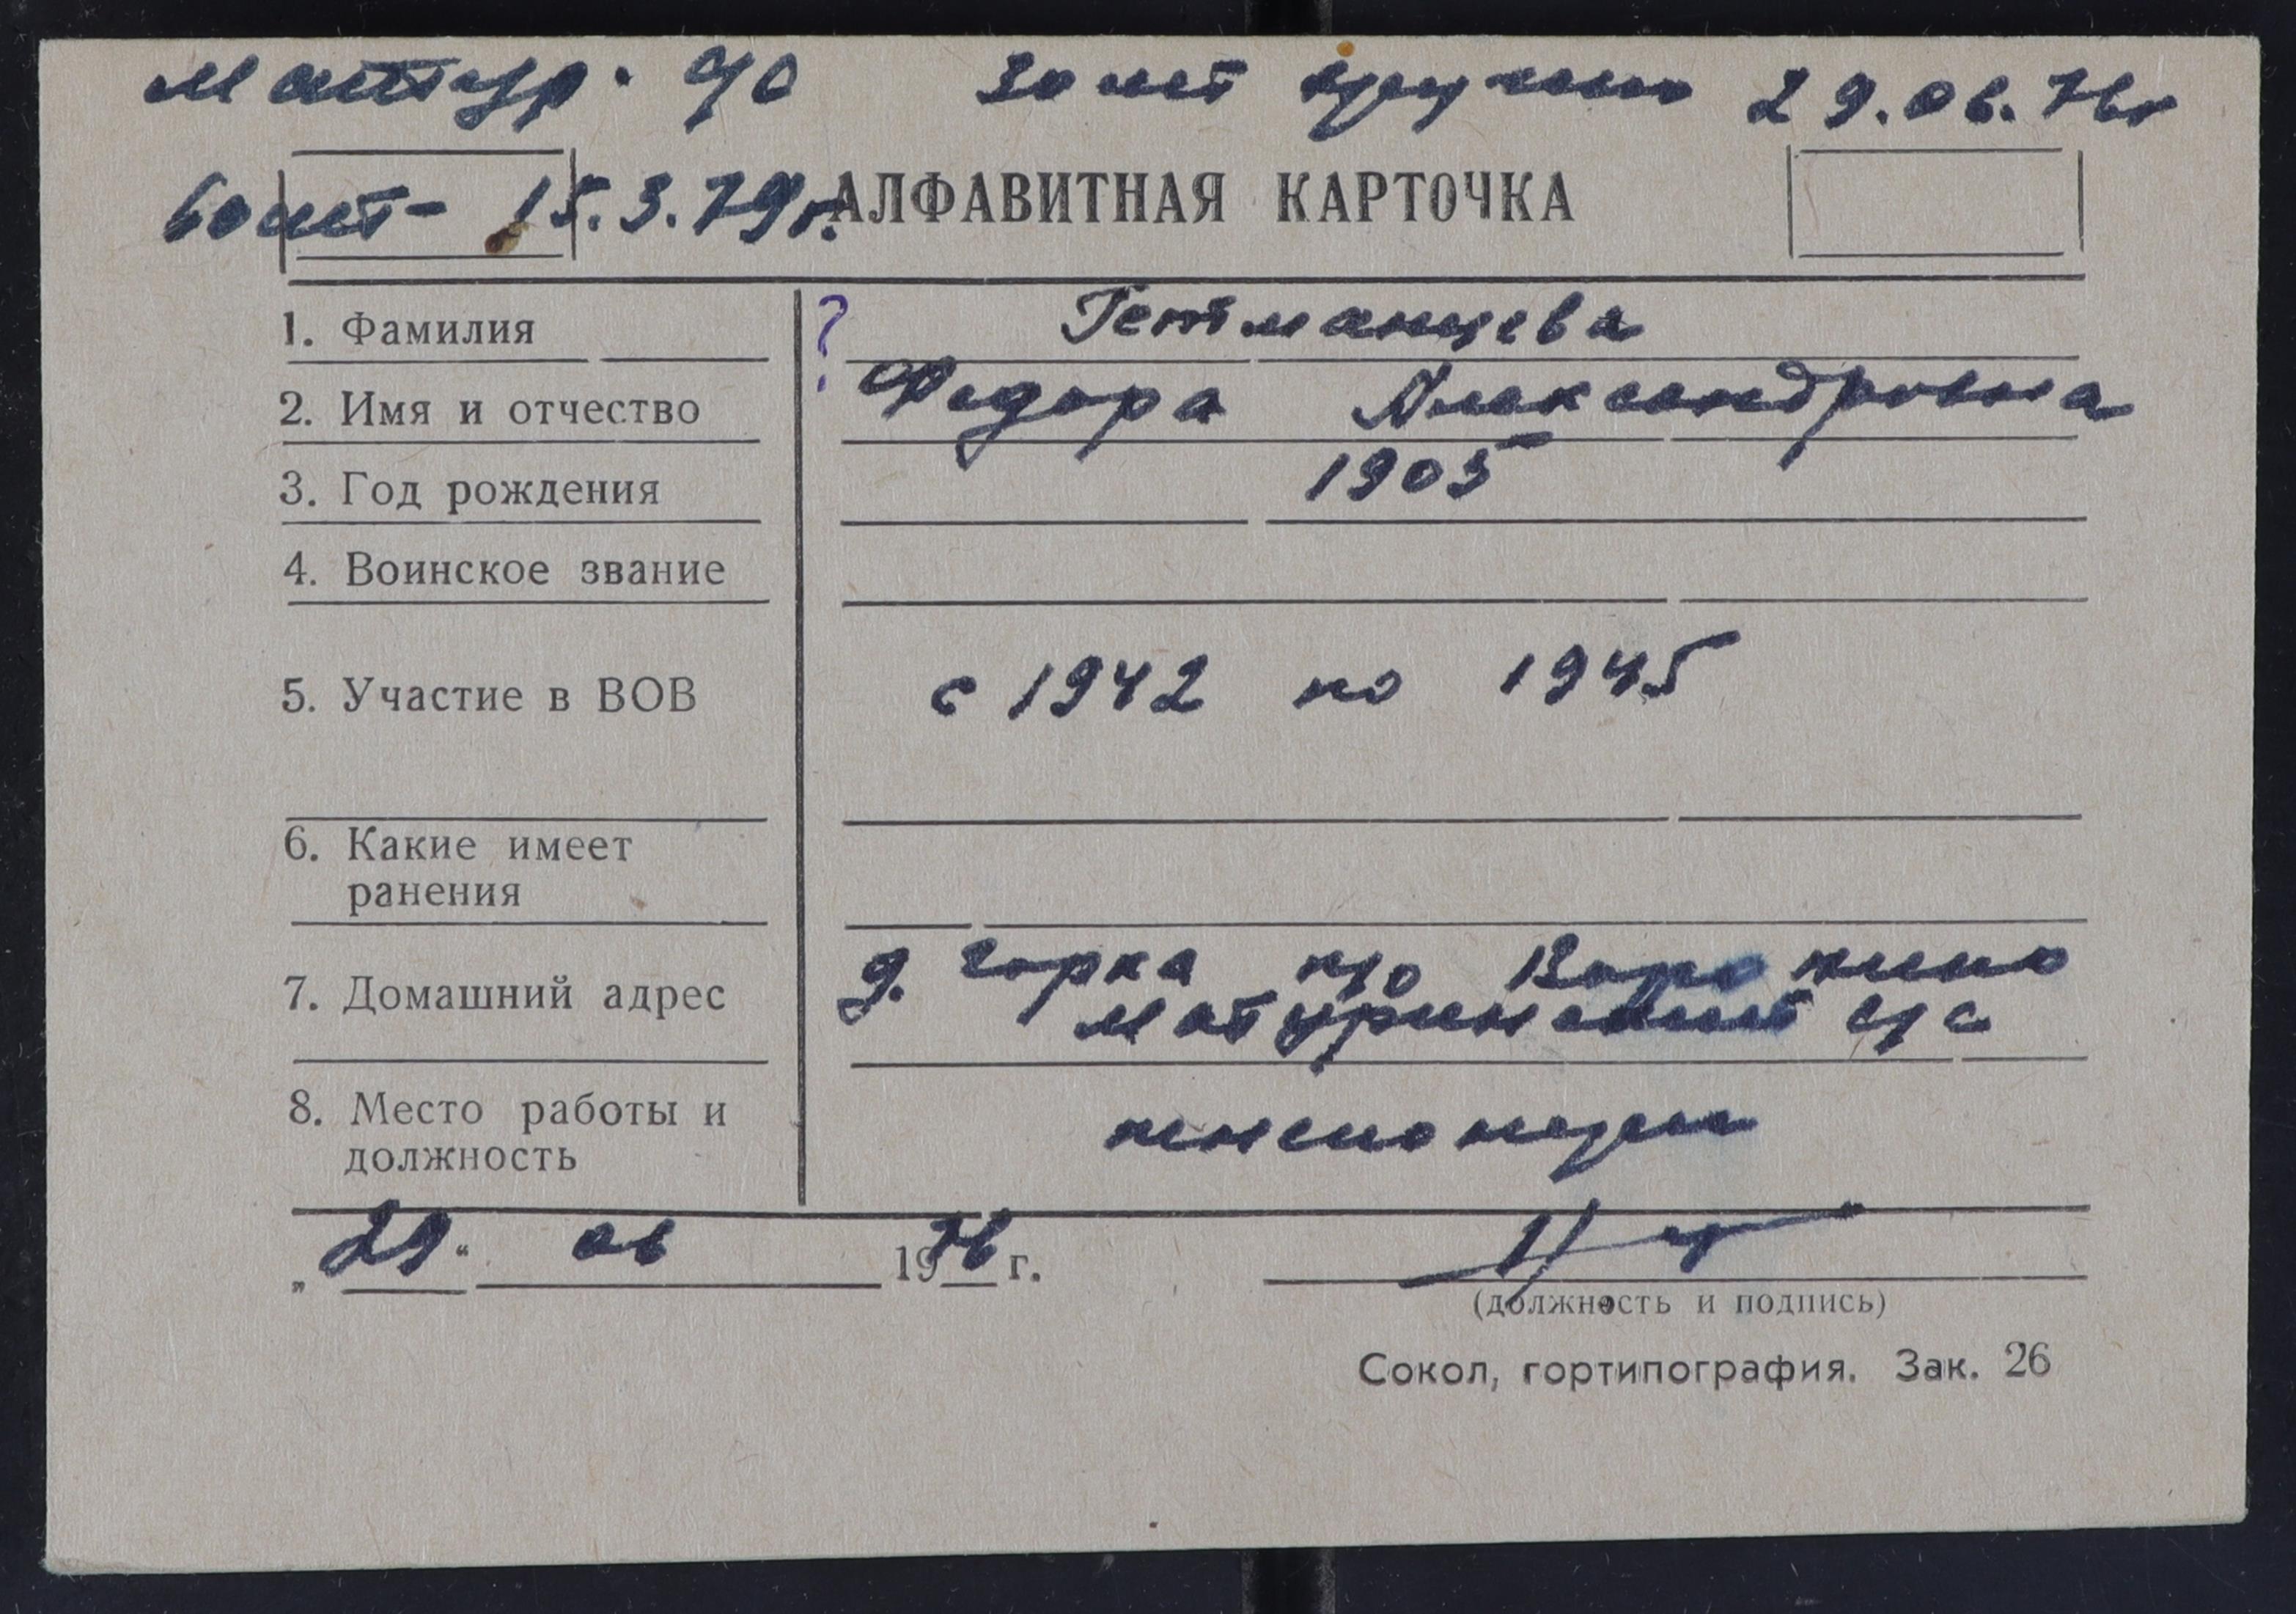 Матур. с/с 30 лет вручено 29.06.76г
60 лет - 15.3.79г.
АЛФАВИТНАЯ КАРТОЧКА
1. Фамилия ? Гетманцева
2. Имя и отчество Федора Александровна
3. Год рождения 1905
4. Воинское звание
5. Участие в ВОВ с 1942 по 1945
6. Какие имеет
ранения
7. Домашний адрес д. Горка п/о
Матуринский с/с
8. Место работы и
должность пенсионерка
„29“ 06 1976 г.
(должность и подпись)
Сокол, гортипография. Зак. 26